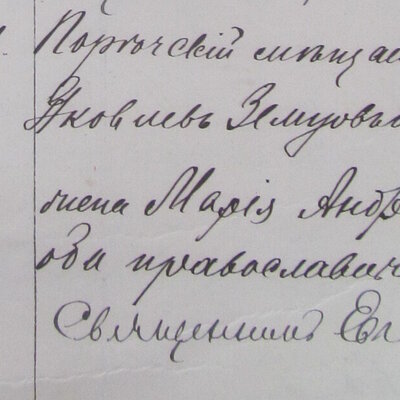 Порѣчскій мѣща
Яковлевъ Земцовъ
жена Марія Андр
оба православн
Священникъ Ев